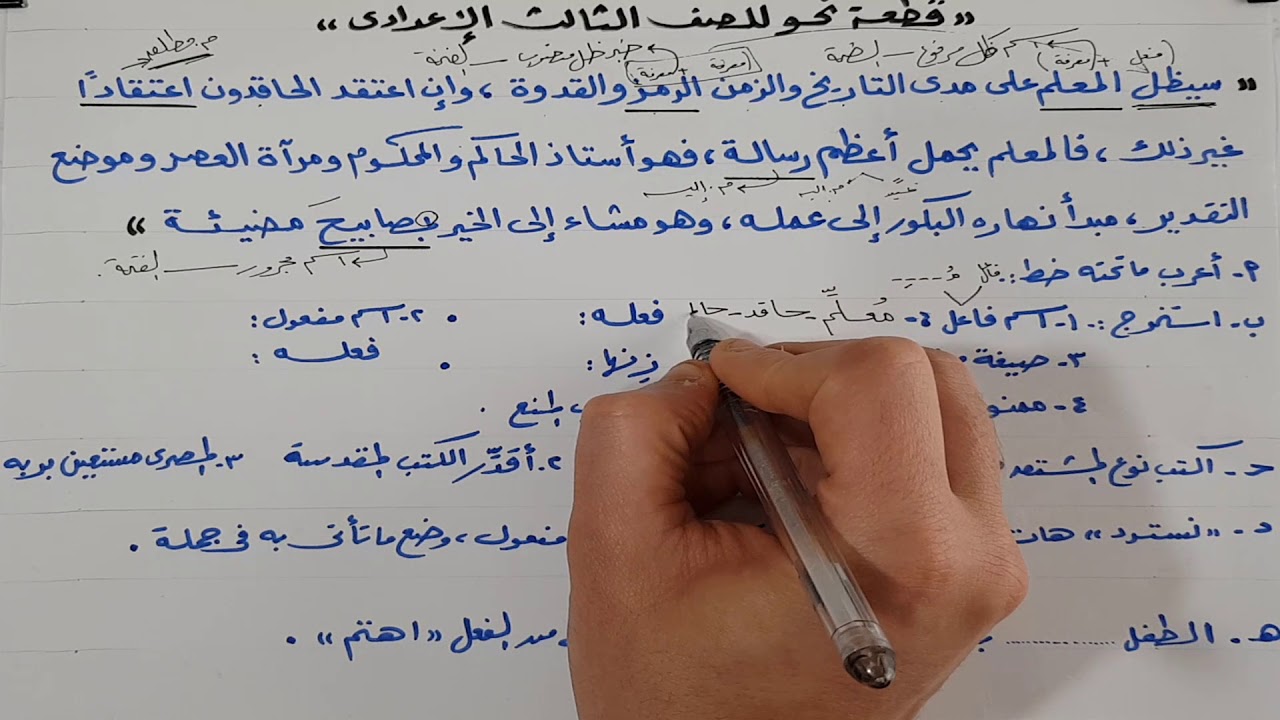 « قطعة نحو للصف الثالث الإعدادى »
(فعل + معرفة) ← اسم ظل مرفوع — الضمة
(معرفة + معرفة) ← خبر ظل منصوب — الفتحة
م. مطلق
« سيظل المعلم على مدى التاريخ والزمن الرمز والقدوة ، وإن اعتقد الحاقدون اعتقادًا
غير ذلك ، فالمعلم يحمل أعظم رسالة ، فهو أستاذ الحاكم والمحكوم ومرآة العصر وموضع
تمييز م. إليه ← م. إليه
التقدير ، مبدأ نهاره البكور إلى عمله ، وهو مشاء إلى الخير بمصابيحَ مضيئة »
← اسم مجرور — الفتحة .
م- أعرب ما تحته خط :. فاعل مُـ ----ـِـ
ب- استخرج :. ١- اسم فاعل ٤- مُعلِّم - حاقد - حا فعله : . ٢- اسم مفعول :
٣- صيغة زنها : . فعلـه :
٤- ممنو ، المنع .
حـ- اكتب نوع المشتق ٢. أقدِّر الكتب المقدسة ٣. المصرى مستعين بربه
د- « نسترد » هات مفعول ، وضع ما تأتى به فى جملة .
هـ - الطفل .......... من الفعل « اهتم » .